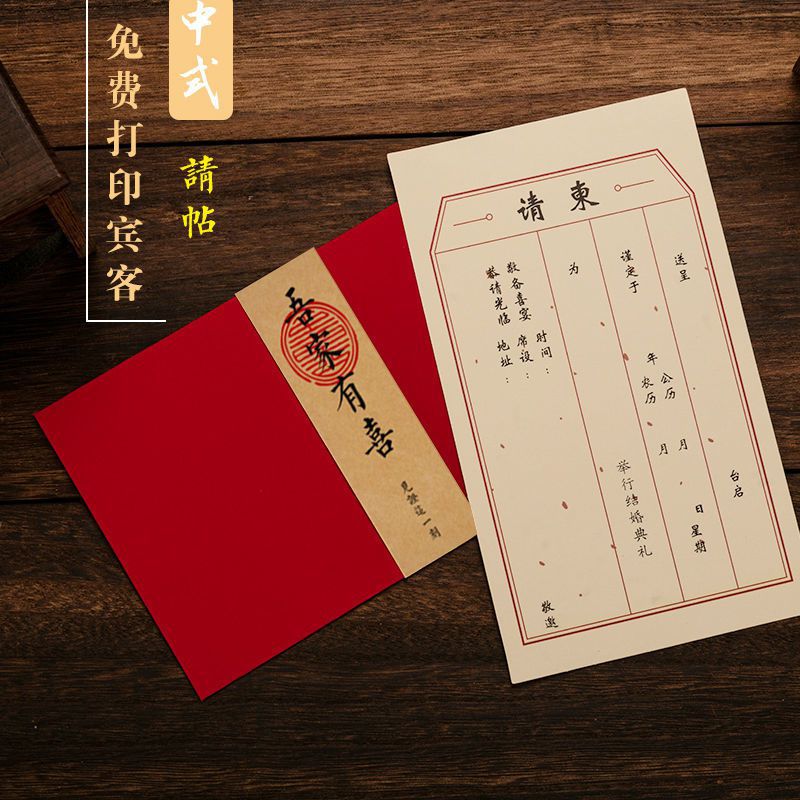 中式
請帖
免费打印宾客
吾家有喜
見證這一刻
请柬
送呈
台启
谨定于
公历
年
月
日星期
农历
月
为
举行结婚典礼
敬备喜宴
恭请光临
时间：
席设：
地址：
敬邀